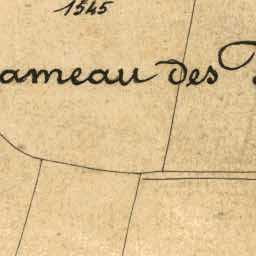 1545
ameau des